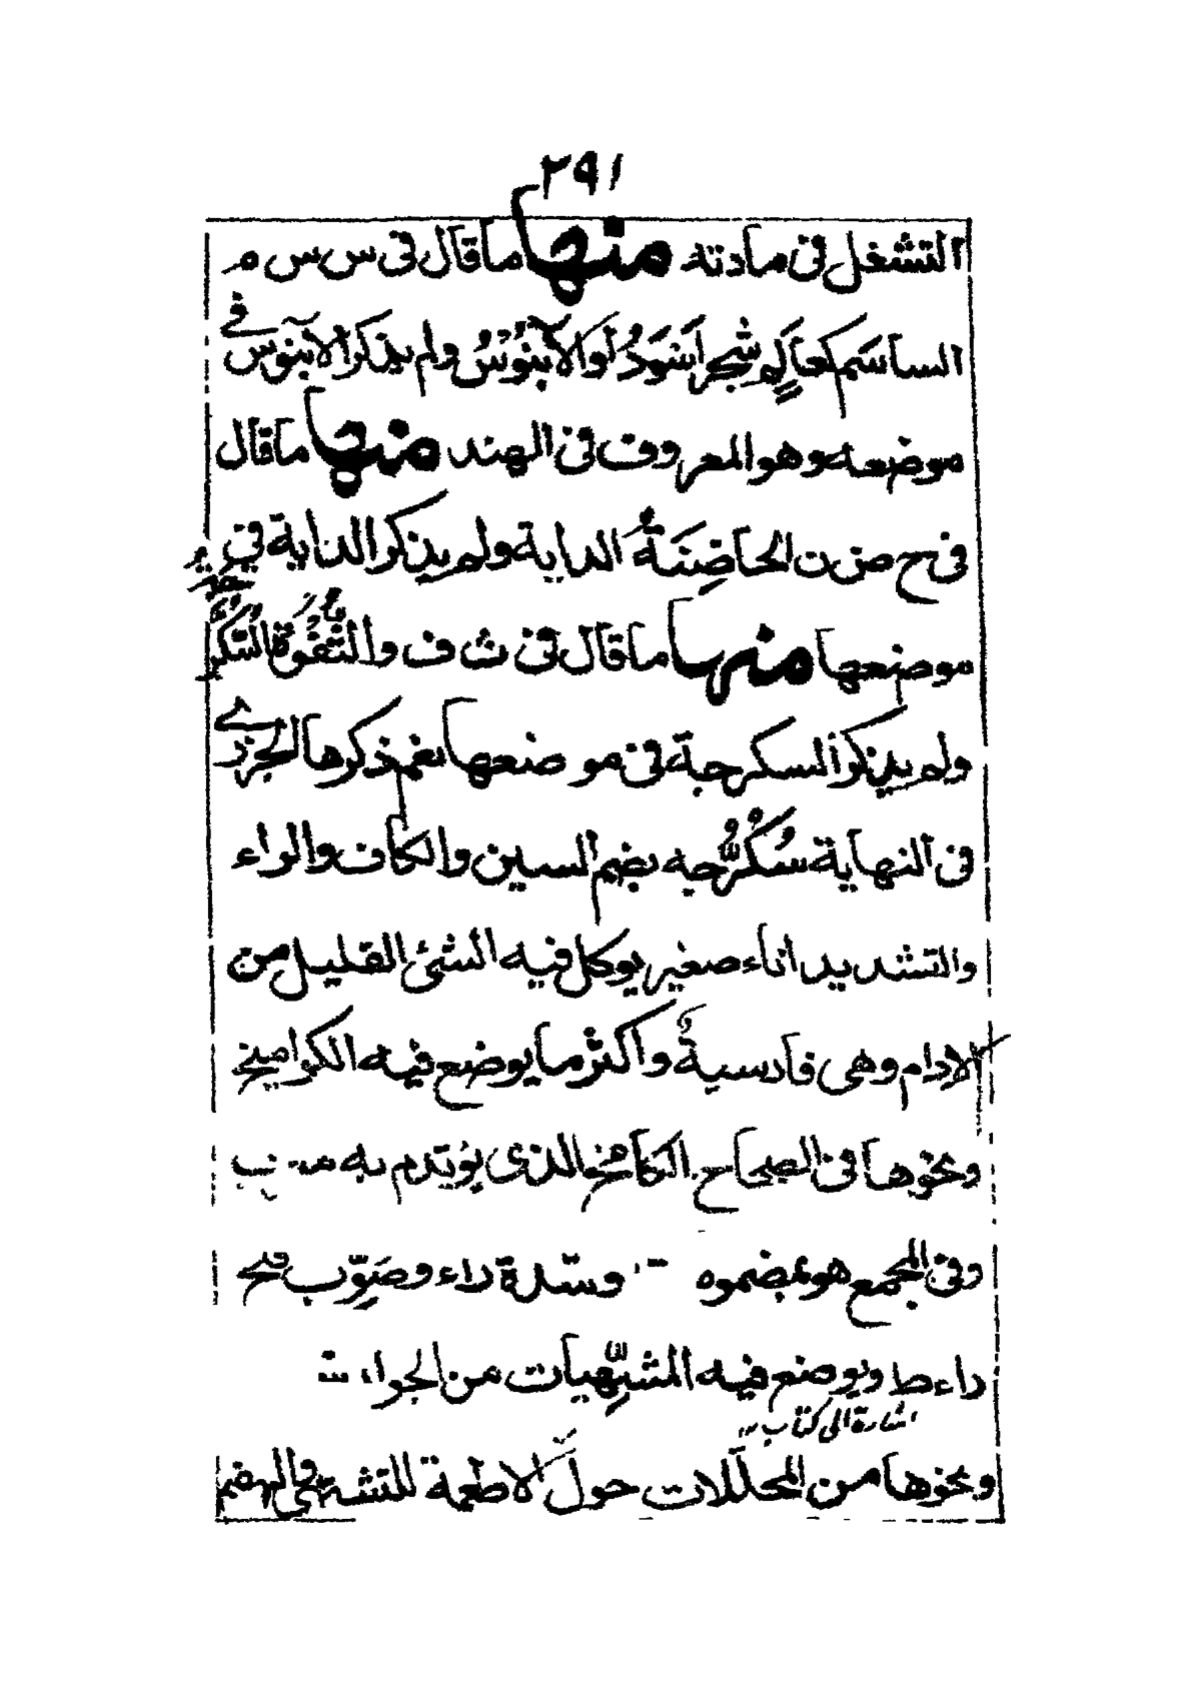 ٢٩١
التشغل فى مادته منها ما قال فى س س م
الساسَم كعالَم شجر اَسْوَدُ او الآبِنُوْسُ ولم يذكر الآبنوس في
موضعه وهو المعروف فى الهند منها ما قال
فى ح ض ن الحاضِنَةُ الداية ولم يذكر الداية في
موضعها منها ما قال فى ث ف والثُّفْوَةُ السُّكُرُّجَةُ
ولم يذكر السكرجة فى موضعها نعم ذكرها الجزرے
فى النهاية سُكُرُّجه بضم السين والكاف والراء
والتشديد اناء صغير يوكل فيه الشئ القليل من
الادام وهى فارسيةٌ واكثر ما يوضع فيه الكواميخ
ونحوها فى الصحاح الكامخ الذى يؤتدم به
وفى المجمع هو بضموه وشدة راء وصَوِّب فتح
راء ط ويوضع فيه المشهِّيات من
اشارة الى كتاب
ونحوها من المخلّلات حول الاطعمة للتشهى والهضم